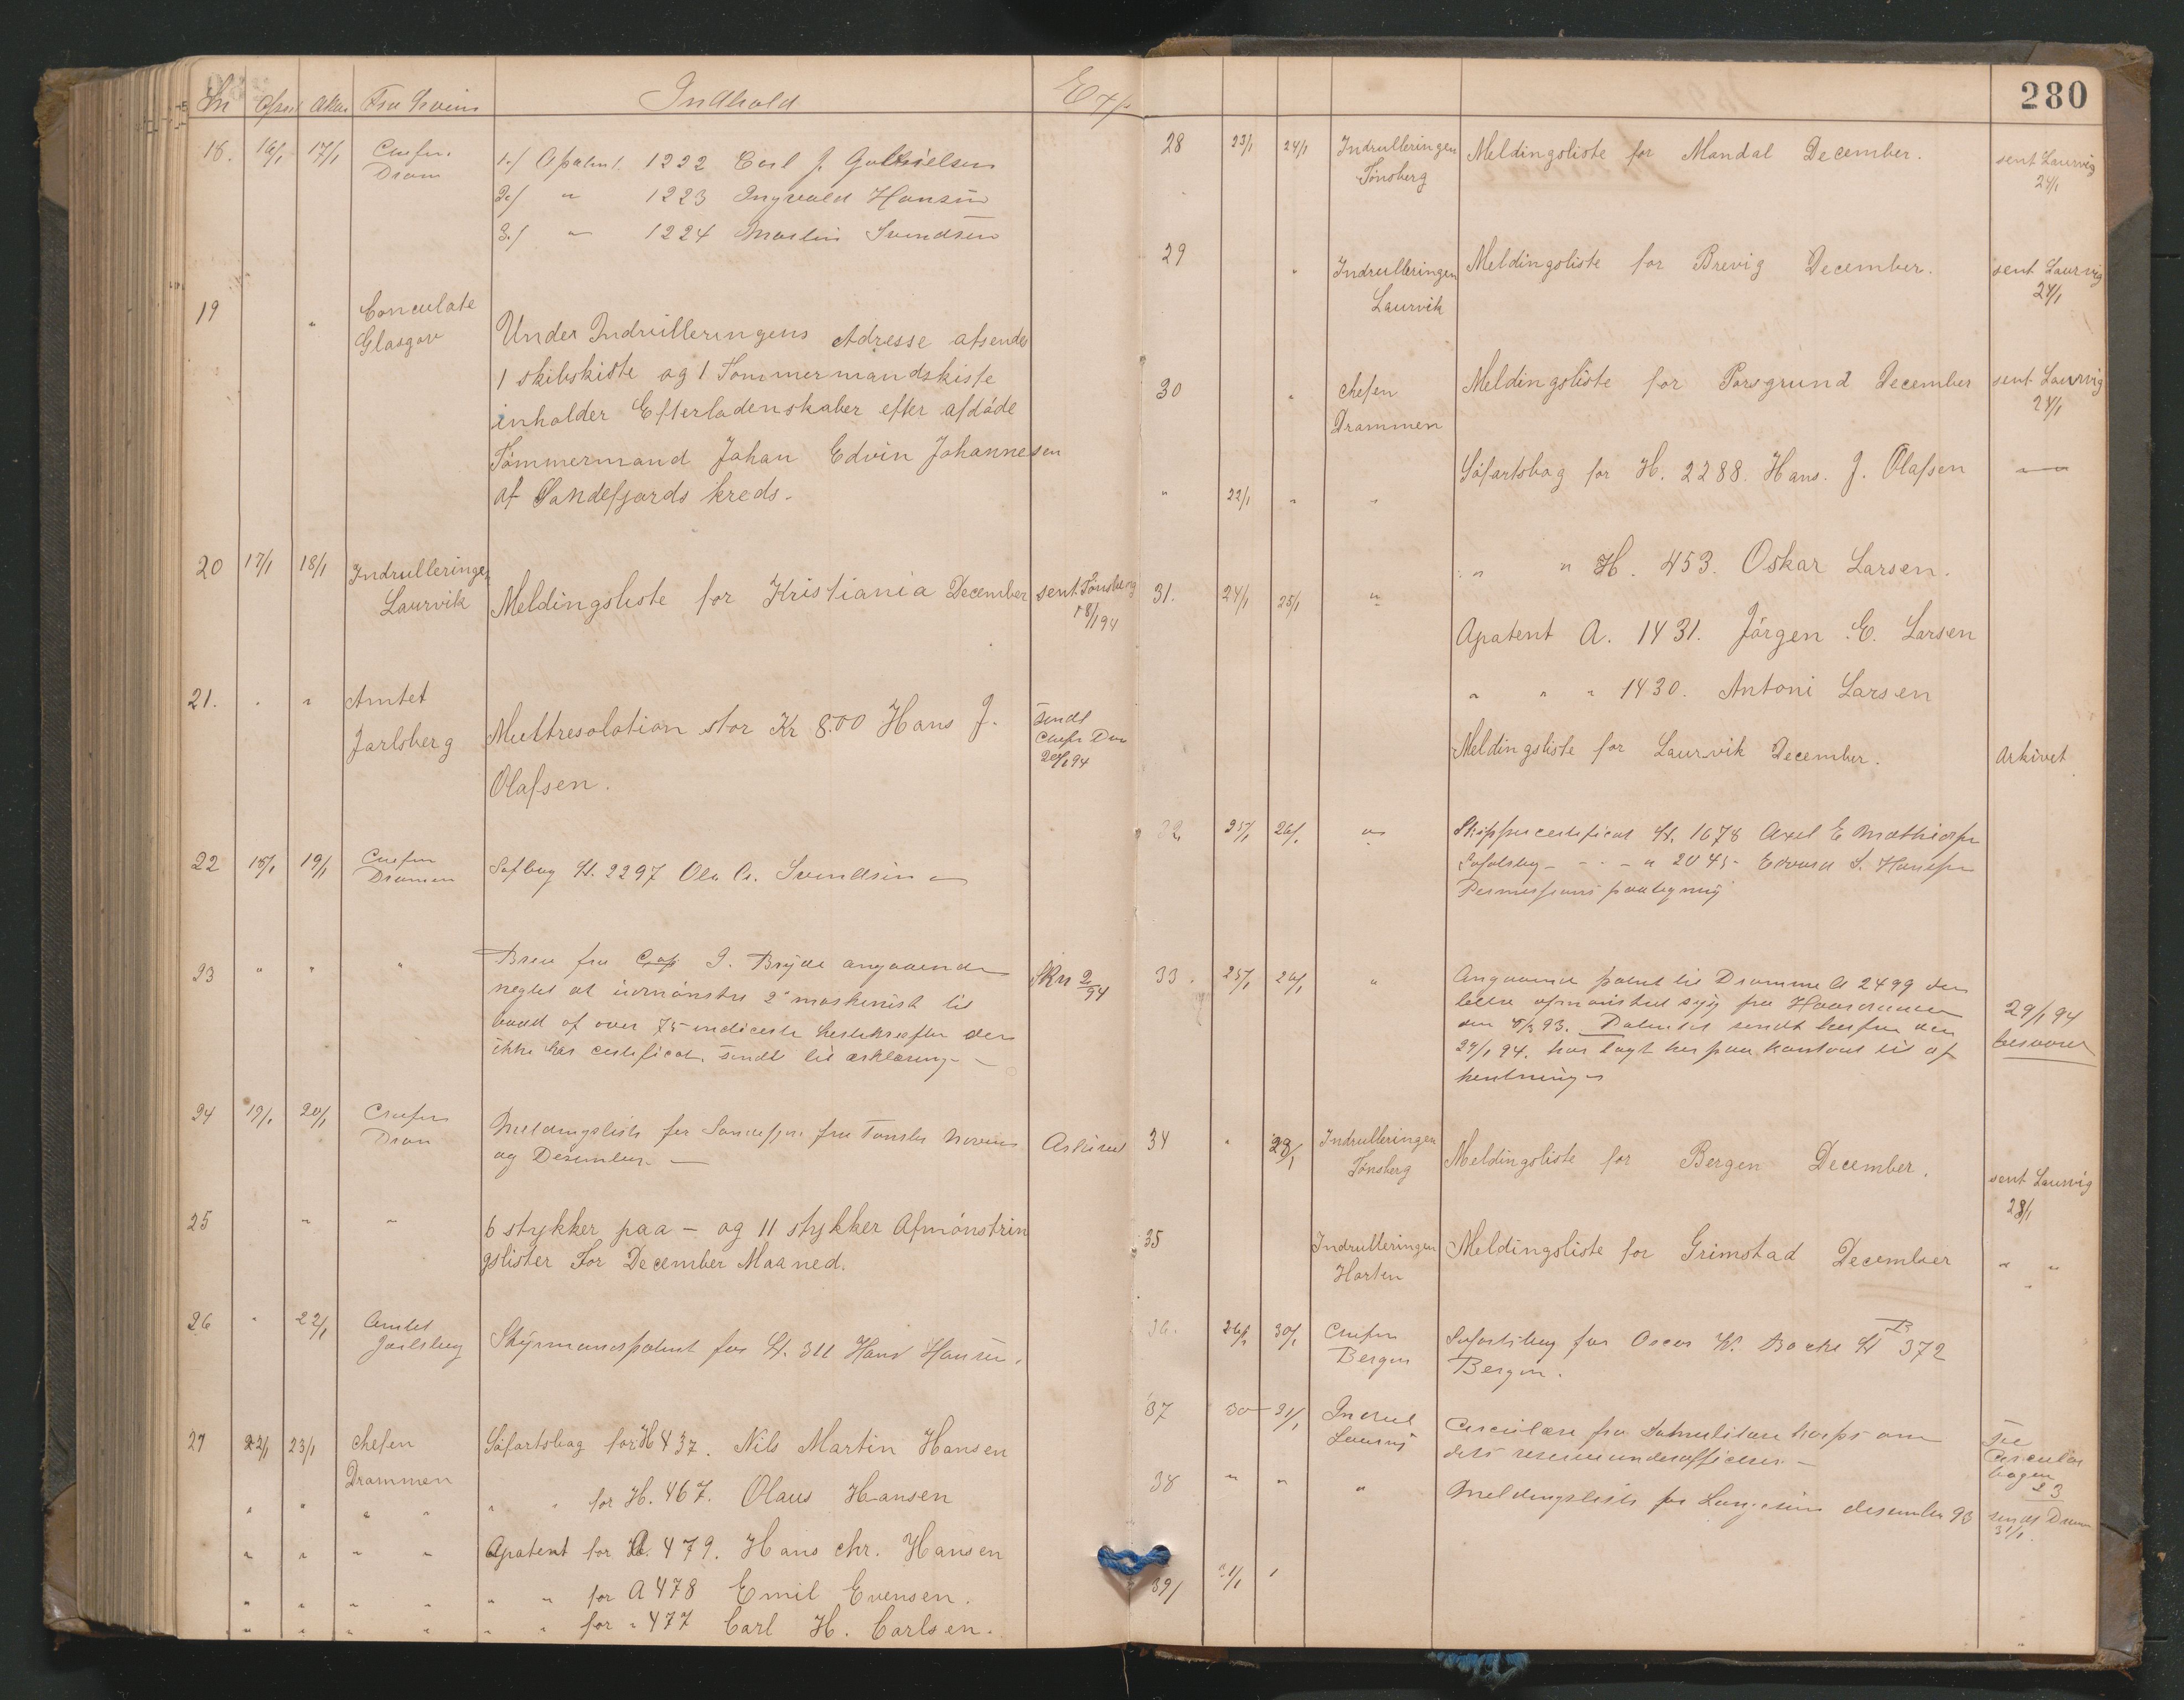 Indhold
Exp
18. 16/1 17/1 Chefen 1./ Apatent. 1222 Carl J. Gulbrielsen
Dram
2./ " 1223 Ingvald Hansen
3./ " 1224 Martin Svendsen
19 " Conculate
Glasgow Under Indrulleringens Adresse afsendes
1 skibskiste og 1 Tømmermandskiste
inholder Efterladenskaber efter afdöde
Tömmermand Johan Edvin Johannesen
af Sandefjords kreds.
20 17/1 18/1 Indrulleringen
Laurvik Meldingsliste for Kristiania December sent Tönsberg
18/1 94
21. " " Amtet
Jarlsberg Mulktresolotion stor Kr 8.00 Hans J.
Olafsen.
sendt
Chefen Dra
20/1 94
22 18/1 19/1 Chefen
Dramen Søfbog H. 2297 Ole A. Svendsen
23 " " " Brev fra Cap I. Bryde angaaende
negtet at udmönstre 2 maskinist til
baad af over 75 indicerte hestekrefter der
ikke har certificat. sendt til erklæring
24 19/1 20/1 Chefen
Dram Meldingsliste for fra November
og Desember. Arkivet
25 " " 6 stykker paa - og 11 stykker Afmönstrin
gslister For December Maaned.
26 " 22/1 Amtet
Jarlsberg Styrmandspatent for H. 311 Hans Hansen.
27 22/1 23/1 chefen
Drammen Söfartsbog for H 437. Nils Martin Hansen
" " " " " " for H. 467. Olaus Hansen
" " " " Apatent for A. 479. Hans chr. Hansen
" " " " " " for A 478 Emil Evensen.
" " " " " " for " 477 Carl H. Carlsen.
280
28 23/1 24/1 Indrulleringen
Tönsberg Meldingsliste for Mandal December. sent Laurvig
24/1
29 " Indrulleringen
Laurvik Meldingsliste for Brevig December. sent Laurvig
24/1
30 " chefen
Drammen Meldingsliste for Porsgrund December sent Laurvig
24/1
" 22/1 " " Söfartsbog for H. 2288. Hans. J. Olafsen
31. 24/1 25/1 " " " H. 453. Oskar Larsen.
Apatent A. 1431. Jörgen E. Larsen
" " " 1430. Antoni Larsen
Meldingsliste for Laurvik December. Arkivet
32 25/1 26/1 " Skippercertificat H. 1678 Axel E Mathisen
" 2045 Edvard S. Hansen
Permissions paategning
33. 25/1 26/1 " Angaaende patent til Dramme A 2499 den
afmönstret syg fra
93. Patentet sendt herfra den
29/1 94. har lagt her paa kontoret til af
hentning
29/1 94
besvaret
34 " 28/1 Indrulleringen
Tönsberg Meldingsliste for Bergen December. sent Laurvig
28/1
35 Indrulleringen
Horten Meldingsliste for Grimstad December " "
36. 26/1 30/1 Chefen
Bergen Søfartsbog for Oscar W. Bache H 372
Bergen.
37 30 31/1 Indrul
Laurvig Circulære fra korps om
dets reserveunderofficerer.
Se
Circulær
bogen
23
38 " " " Meldingsliste for Langesund desember 93 sendt Dram
31/1.
39/ 31/1